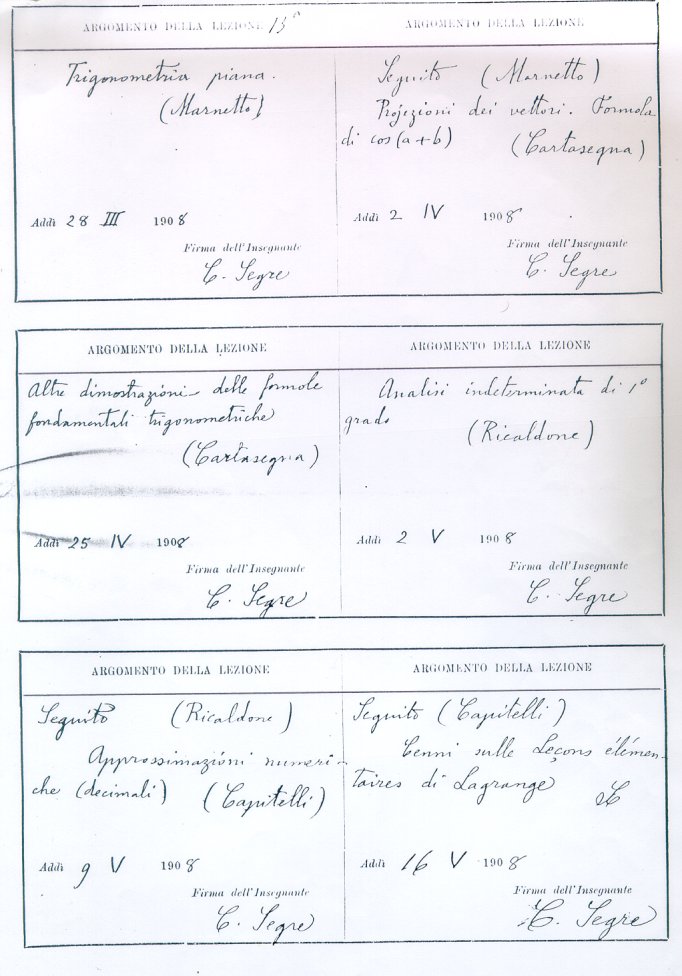 ARGOMENTO DELLA LEZIONE 13ª
Trigonometria piana.
(Marnetto)
Addì 28 III 1908
Firma dell'Insegnante
C. Segre
ARGOMENTO DELLA LEZIONE
Seguito (Marnetto)
Projezioni dei vettori. Formola
di cos(a+b)
(Cartasegna)
Addì 2 IV 1908
Firma dell'Insegnante
C. Segre
ARGOMENTO DELLA LEZIONE
Altre dimostrazioni delle formole
fondamentali trigonometriche
(Cartasegna)
Addì 25 IV 1908
Firma dell'Insegnante
C. Segre
ARGOMENTO DELLA LEZIONE
Analisi indeterminata di 1º
grado
(Ricaldone)
Addì 2 V 1908
Firma dell'Insegnante
C. Segre
ARGOMENTO DELLA LEZIONE
Seguito (Ricaldone)
Approssimazioni numeri-
che (decimali) (Capitelli)
Addì 9 V 1908
Firma dell'Insegnante
C. Segre
ARGOMENTO DELLA LEZIONE
Seguito (Capitelli)
Cenni sulle Leçons élémen-
taires di Lagrange
Addì 16 V 1908
Firma dell'Insegnante
C. Segre